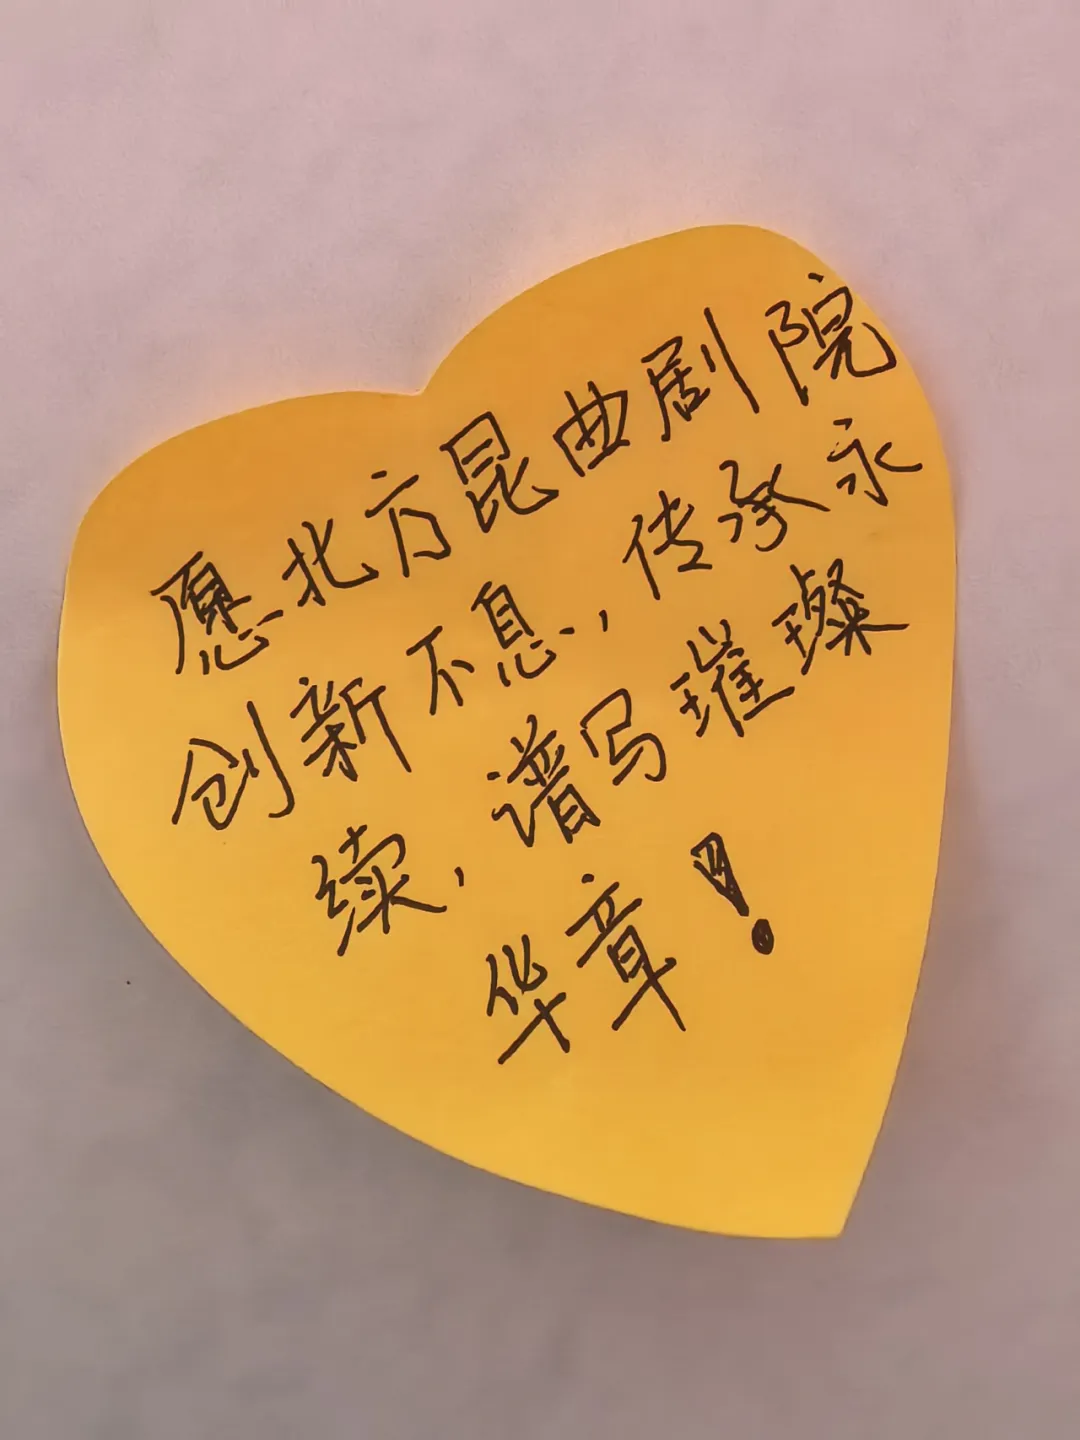 愿北方昆曲剧院
创新不息，传承永
续，谱写璀璨
华章！